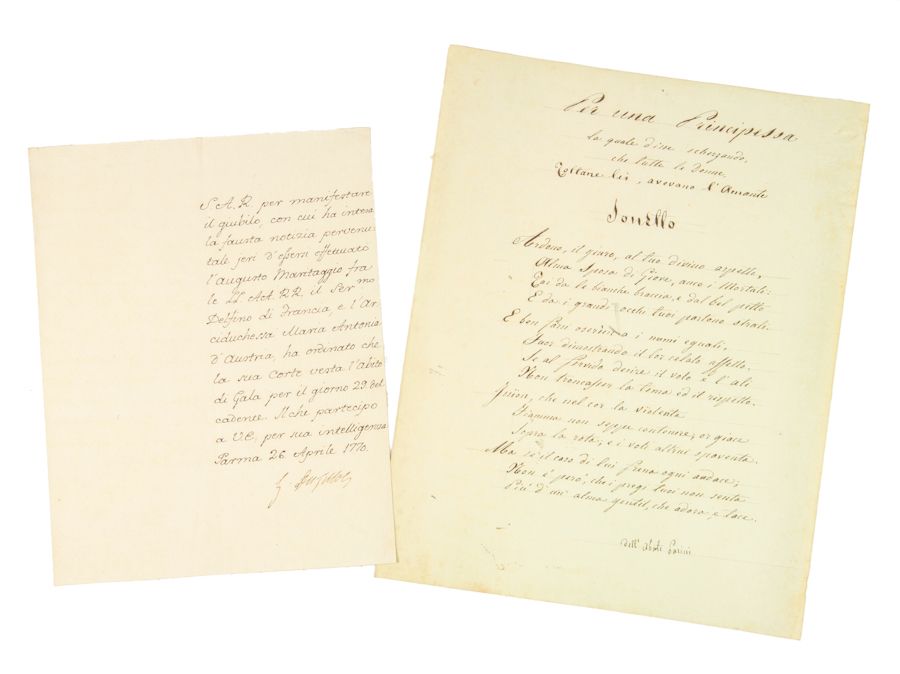 S. A. R. per manifestare
il giubilo, con cui ha intesa
la fausta notizia pervenu-
tale jeri d'essersi effettuato
l'augusto Maritaggio fra
le LL. AA. RR. il Ser.mo
Delfino di Francia, e l'Ar-
ciduchessa Maria Antonia
d'Austria, ha ordinato che
la sua Corte vesta l'Abito
di Gala per il giorno 29. del
cadente. Il che partecipo
a V. E. per sua intelligenza
Parma 26. Aprile 1770.
Per una Principessa
la quale disse scherzando,
che tutte le donne,
toltane lei, avevano l'Amante
Sonetto
Ardono, il giuro, al tuo divino aspetto,
Alma Sposa di Giove, anco i Mortali:
Poi da le bianche braccia, e dal bel petto
E da i grandi occhi tuoi partono strali.
E ben farsi oserieno a i numi eguali,
Fuor dimostrando il lor celato affetto,
Se al fervido desire il volo e l'ali
Non troncasser la tema ed il rispetto.
Ission, che nel cor la violenta
Fiamma non seppe contenere, or giace
Sopra la rota; e i voti altrui spaventa.
Ma se il caso di lui frena ogni audace;
Non è però, che i pregi tuoi non senta
Più d'un' alma gentil, che adora e tace.
Dell' Abate Parini